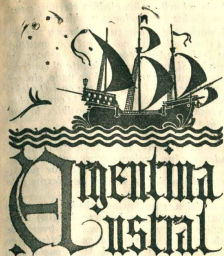 Argentina
Austral